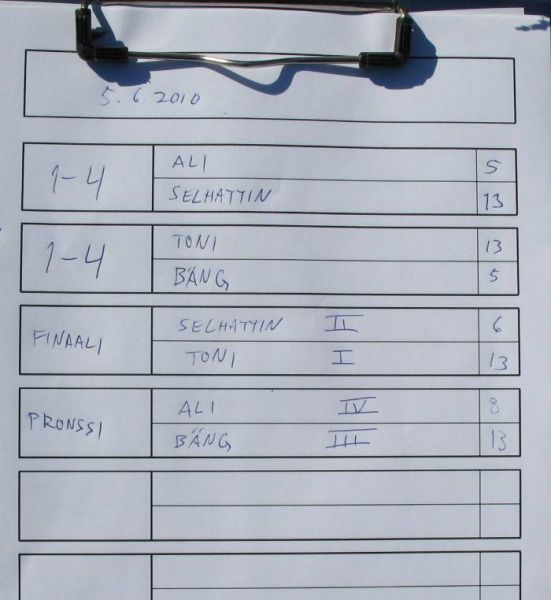 5.6.2010
1-4 ALI 5
SELHATTIN 13
1-4 TONI 13
BÄNG 5
FINAALI SELHATTIN II 6
TONI I 13
PRONSSI ALI IV 8
BÄNG III 13